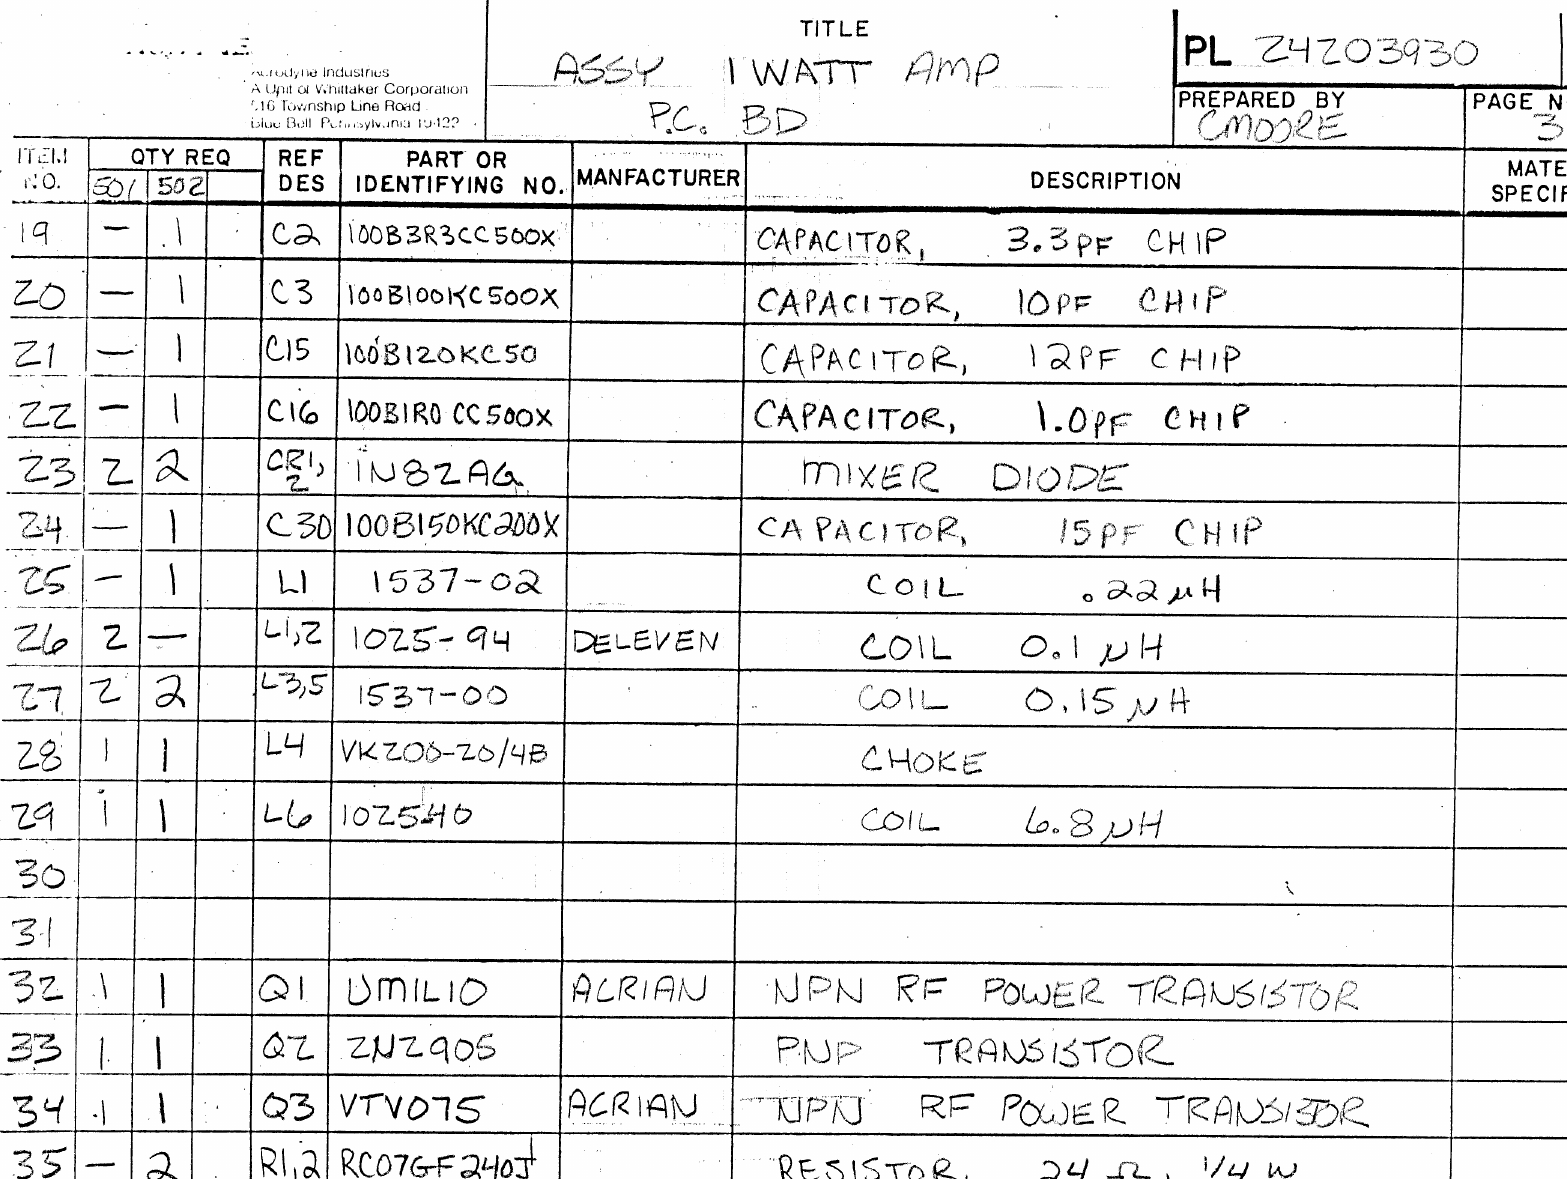 Aerodyne Industries
A Unit of Whittaker Corporation
516 Township Line Road
Blue Bell Pennsylvania 19422
TITLE
ASSY 1 WATT AMP
P.C. BD
PL 24203930
PREPARED BY
CMOORE
PAGE N
3
ITEM NO. QTY REQ 501 502 REF DES PART OR IDENTIFYING NO. MANFACTURER DESCRIPTION MATE SPECIF
19 – 1 C2 100B3R3CC500X CAPACITOR, 3.3PF CHIP
20 – 1 C3 100B100KC500X CAPACITOR, 10PF CHIP
21 – 1 C15 100B120KC50 CAPACITOR, 12PF CHIP
22 – 1 C16 100B1R0CC500X CAPACITOR, 1.0PF CHIP
23 2 2 CR1,2 1N82AG MIXER DIODE
24 – 1 C30 100B150KC200X CAPACITOR, 15PF CHIP
25 – 1 L1 1537-02 COIL .22µH
26 2 – L1,2 1025-94 DELEVEN COIL 0.1µH
27 2 2 L3,5 1537-00 COIL 0.15µH
28 1 1 L4 VK200-20/4B CHOKE
29 1 1 L6 102540 COIL 6.8µH
30
31
32 1 1 Q1 UMIL10 ACRIAN NPN RF POWER TRANSISTOR
33 1 1 Q2 2N2905 PNP TRANSISTOR
34 1 1 Q3 VTV075 ACRIAN NPN RF POWER TRANSISTOR
35 – 2 R1,2 RC07GF240J RESISTOR, 24 Ω, 1/4 W